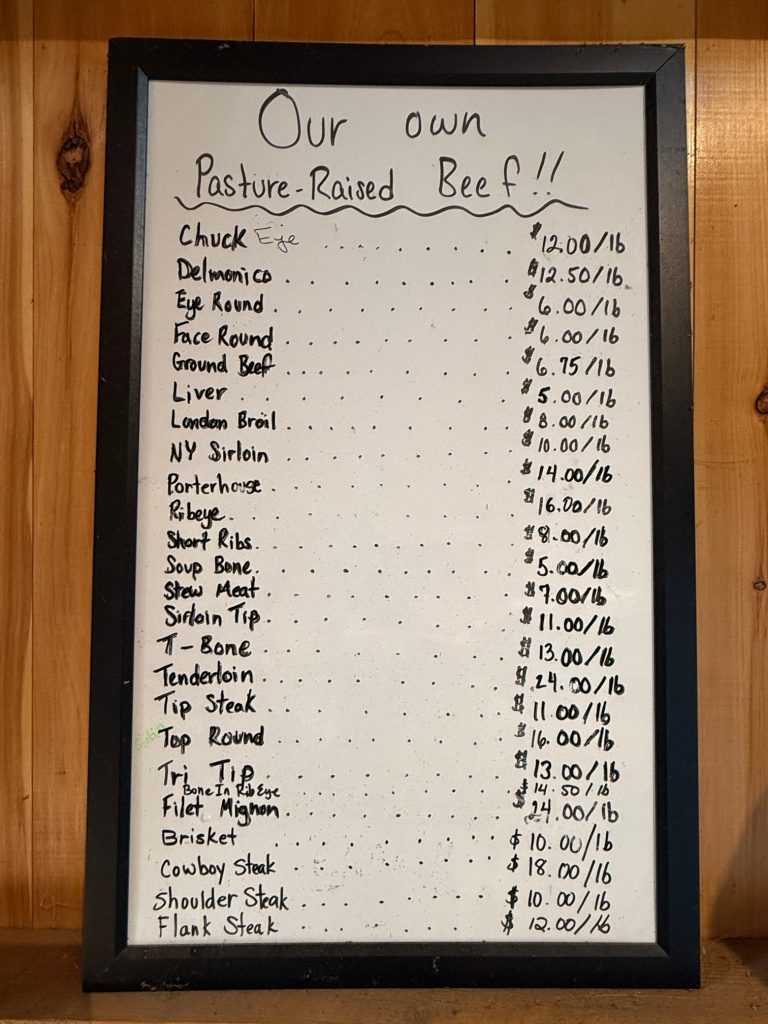 Our own
Pasture-Raised Beef!!
Chuck Eye ......... $12.00/lb
Delmonico ......... $12.50/lb
Eye Round ......... $6.00/lb
Face Round ......... $6.00/lb
Ground Beef ......... $6.75/lb
Liver ......... $5.00/lb
London Broil ......... $8.00/lb
NY Sirloin ......... $10.00/lb
Porterhouse ......... $14.00/lb
Ribeye ......... $16.00/lb
Short Ribs ......... $8.00/lb
Soup Bone ......... $5.00/lb
Stew Meat ......... $7.00/lb
Sirloin Tip ......... $11.00/lb
T-Bone ......... $13.00/lb
Tenderloin ......... $24.00/lb
Tip Steak ......... $11.00/lb
Top Round ......... $16.00/lb
Tri Tip ......... $13.00/lb
Bone In RibEye ......... $14.50/lb
Filet Mignon ......... $24.00/lb
Brisket ......... $10.00/lb
Cowboy Steak ......... $18.00/lb
Shoulder Steak ......... $10.00/lb
Flank Steak ......... $12.00/lb